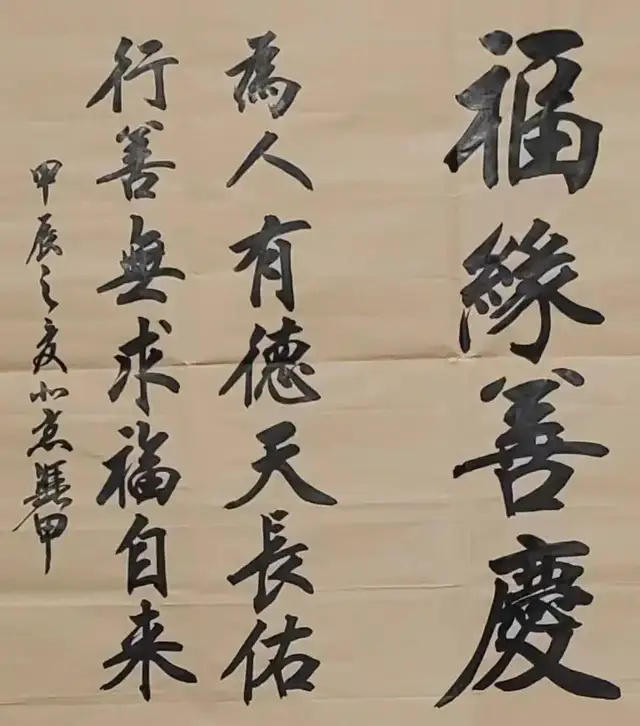 福緣善慶
為人有德天長佑
行善無求福自来
甲辰之夏北京